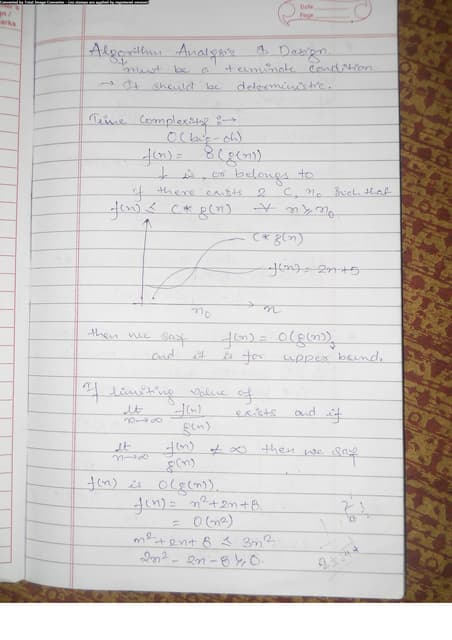 Converted by Total Image Converter - (no stamps are applied by registered version)
Date
Page
Algorithm Analysis & Design
must be a terminate condition
→ It should be deterministic.
Time Complexity :→
O(big-oh)
f(n) = O(g(n))
is, or belongs to
if there exists 2 C, n₀ such that
f(n) ≤ C * g(n) ∀ n ≥ n₀
C * g(n)
f(n) = 2n+5
n₀ → n
then we say f(n) = O(g(n))
and it is for upper bound.
If limiting value of
lt n→∞ f(n)/g(n) exists and if
lt n→∞ f(n)/g(n) ≠ ∞ then we say
f(n) is O(g(n)).
f(n) = n²+2n+8
= O(n²)
n²+2n+8 ≤ 3n²
2n²-2n-8 ≥ 0.